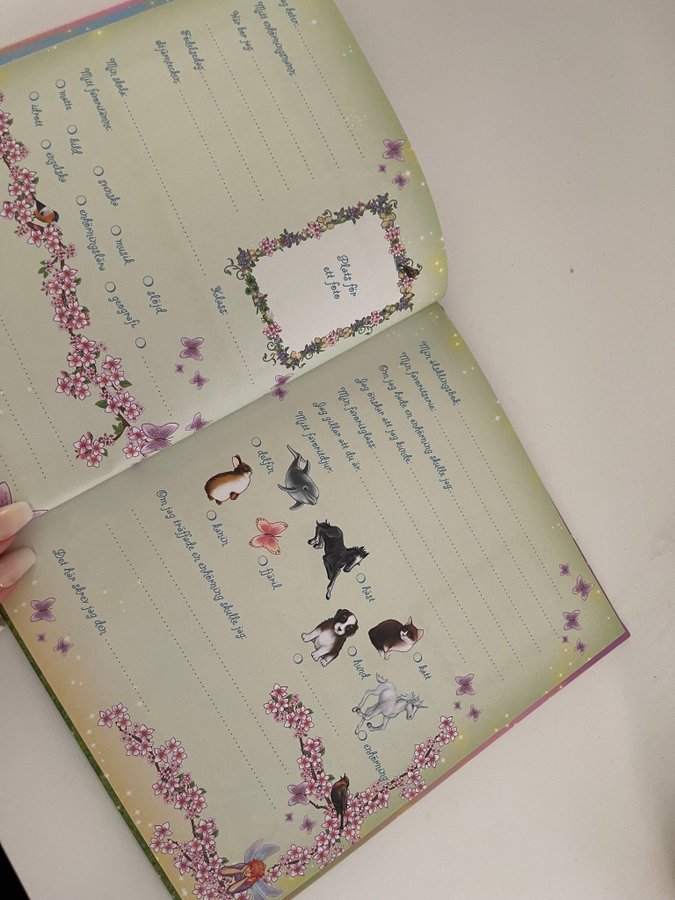 Jag heter:
Mitt enhörningsnamn:
Här bor jag:
Födelsedag:
Stjärntecken:
Min skola:
Klass:
Mitt favoritämne:
matte
bild
svenska
musik
slöjd
idrott
engelska
enhörningslära
geografi
Plats för
ett foto
Min älsklingsbok:
Min favoritserie:
Om jag hade en enhörning skulle jag:
Jag önskar att jag kunde:
Min favoritglass:
Jag gillar att du är:
Mitt favoritdjur:
delfin
häst
katt
kanin
fjäril
hund
enhörning
Om jag träffade en enhörning skulle jag:
Det här skrev jag den